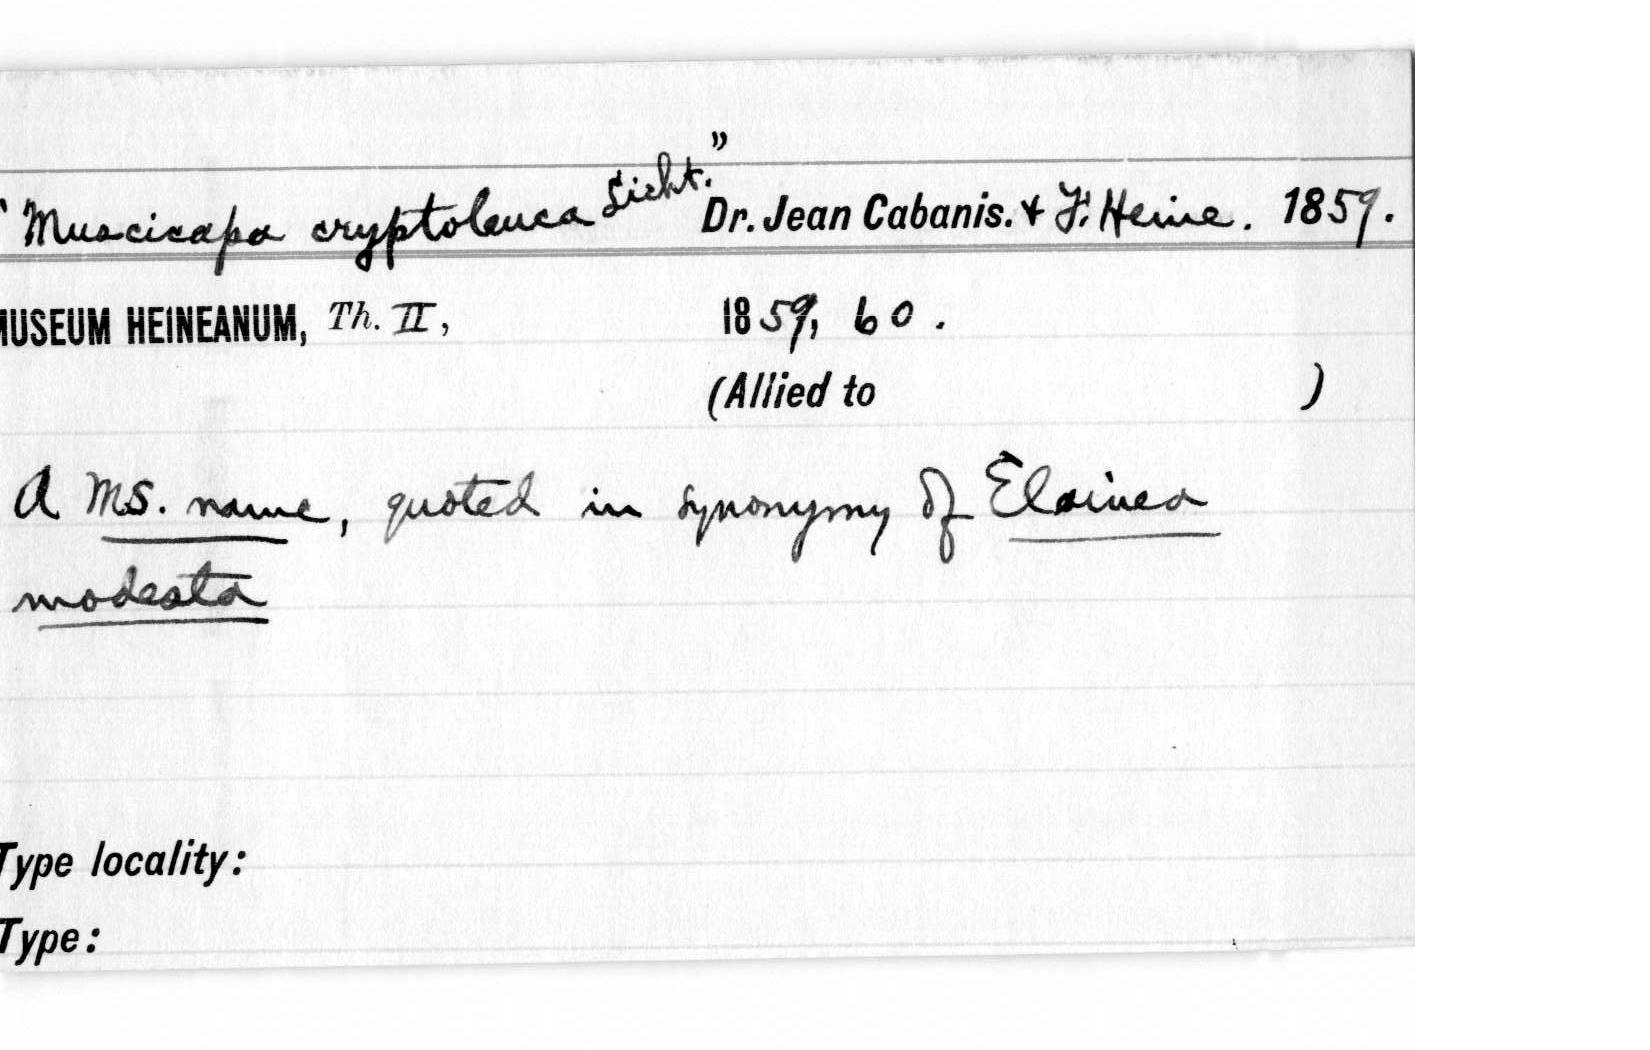 "Muscicapa cryptoleuca Licht." Dr. Jean Cabanis. & F. Heine. 1859.
MUSEUM HEINEANUM, Th. II, 1859, 60.
(Allied to )
A MS. name, quoted in synonymy of Elainea
modesta
Type locality:
Type: